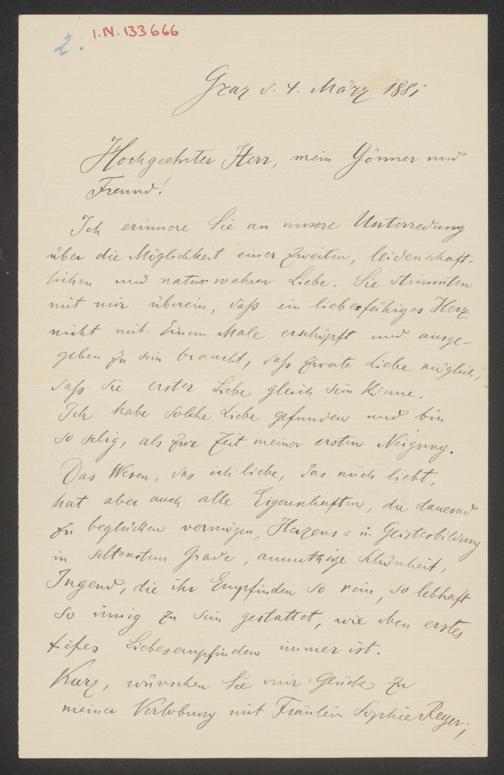 2.
I.N. 133666
Graz d. 4. März 1881
Hochgeehrter Herr, mein Gönner und
Freund!
Ich erinnere Sie an unsere Unterredung
über die Möglichkeit einer zweiten, leidenschaft-
lichen und naturwahren Liebe. Sie stimmten
mit mir überein, daß ein liebesfähiges Herz
nicht mit Einem Male erschöpft und ausge-
geben zu sein braucht, daß zweite Liebe möglich,
daß sie erster Liebe gleich sein könne.
Ich habe solche Liebe gefunden und bin
so selig, als zur Zeit meiner ersten Neigung.
Das Wesen, das ich liebe, das mich liebt,
hat aber auch alle Eigenschaften, die dauernd
zu beglücken vermögen, Herzens- u. Geistesbildung
in seltenstem Grade, anmuthige Schönheit,
Jugend, die ihr Empfinden so rein, so lebhaft
so innig zu sein gestattet, wie eben erstes
tiefes Liebesempfinden immer ist.
Kurz, wünschen Sie mir Glück zu
meiner Verlobung mit Fräulein Sophie Reyer,